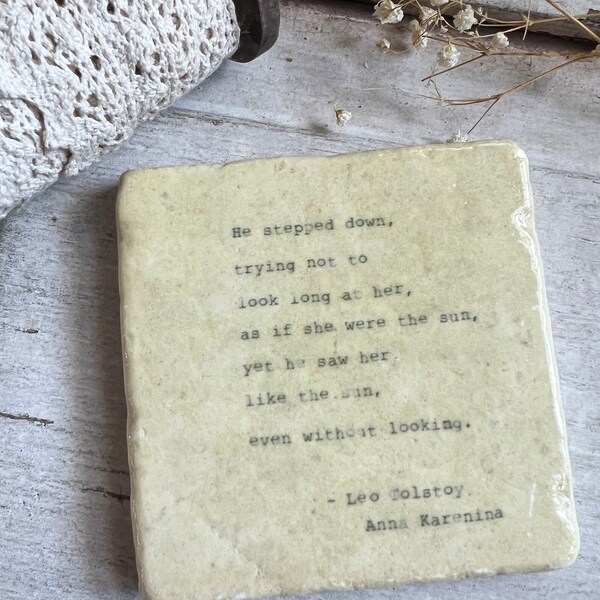 He stepped down,
trying not to
look long at her,
as if she were the sun,
yet he saw her,
like the sun,
even without looking.
- Leo Tolstoy,
Anna Karenina